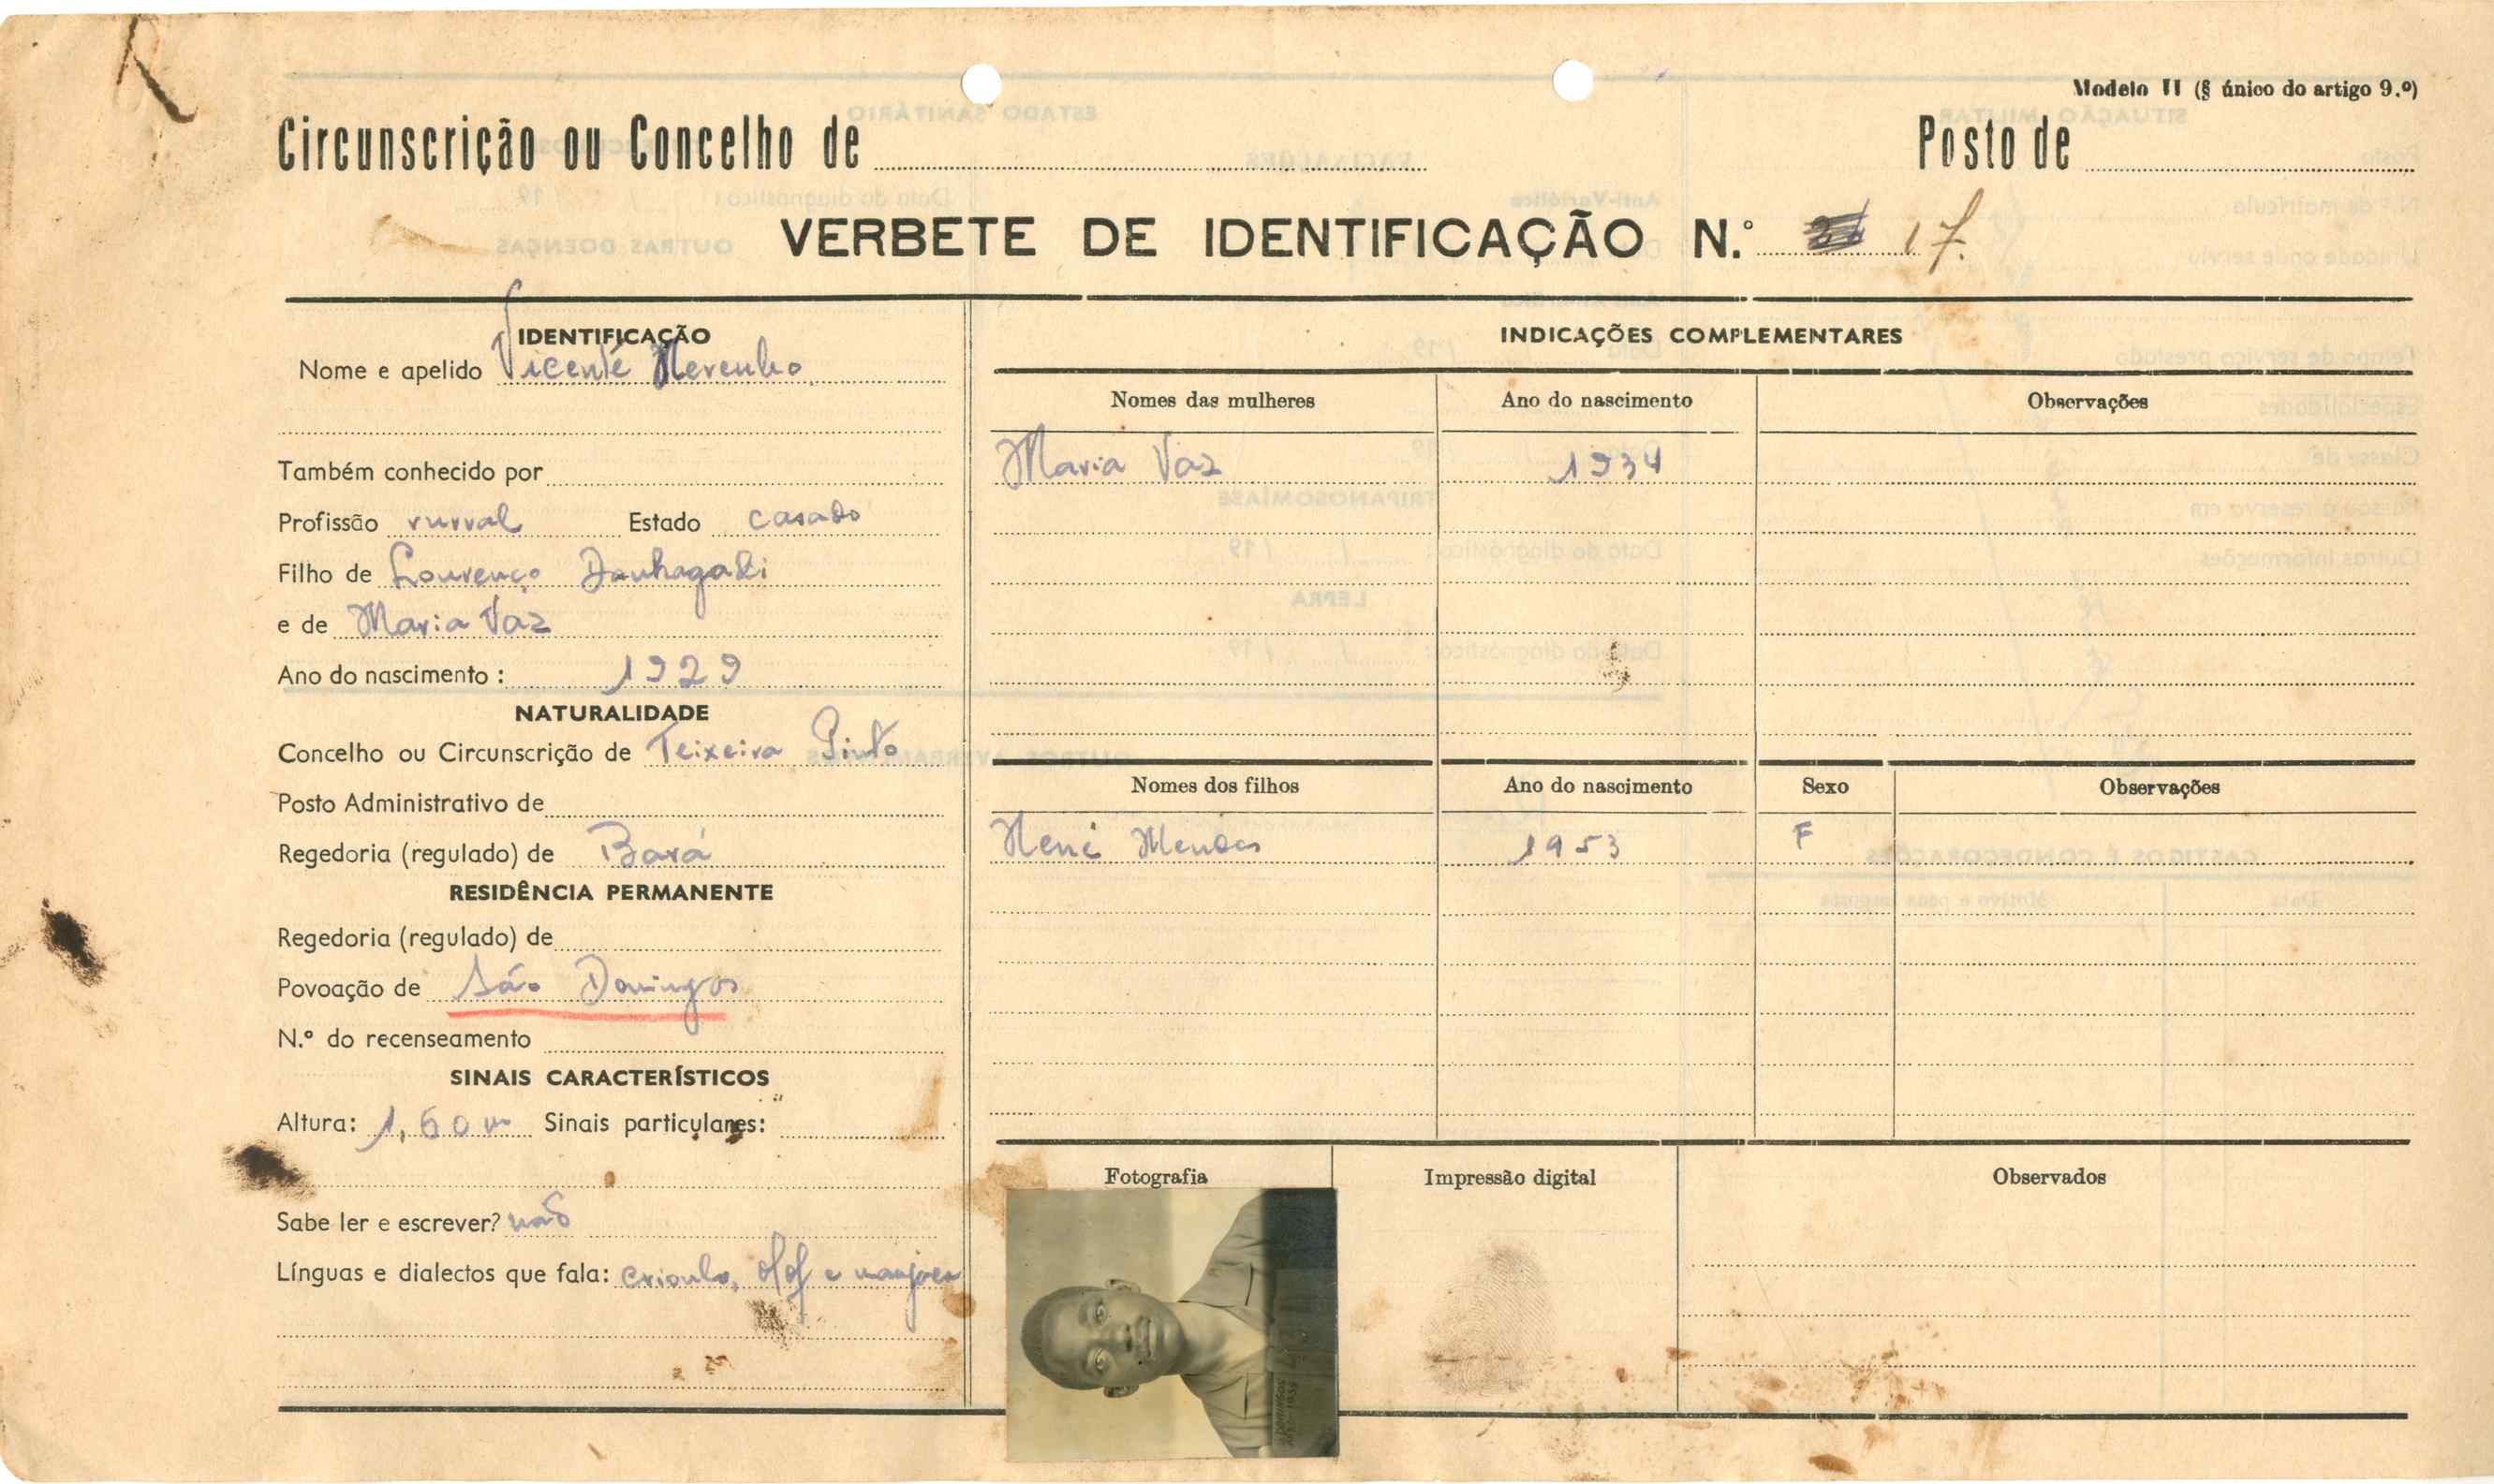 Modelo II (§ único do artigo 9.º)
Circunscrição ou Concelho de
Posto de
VERBETE DE IDENTIFICAÇÃO N.º 17.
IDENTIFICAÇÃO
Nome e apelido Vicente
Também conhecido por
Profissão rurral Estado casado
Filho de Lourenço
e de Maria Vaz
Ano do nascimento: 1929
NATURALIDADE
Concelho ou Circunscrição de Teixeira Pinto
Posto Administrativo de
Regedoria (regulado) de Bará
RESIDÊNCIA PERMANENTE
Regedoria (regulado) de
Povoação de São Domingos
N.º do recenseamento
SINAIS CARACTERÍSTICOS
Altura: 1,60 m Sinais particulares:
Sabe ler e escrever? não
Línguas e dialectos que fala: crioulo, olof e
INDICAÇÕES COMPLEMENTARES
Nomes das mulheres Ano do nascimento Observações
Maria Vaz 1934
Nomes dos filhos Ano do nascimento Sexo Observações
Mendes 1953 F
Fotografia Impressão digital Observados